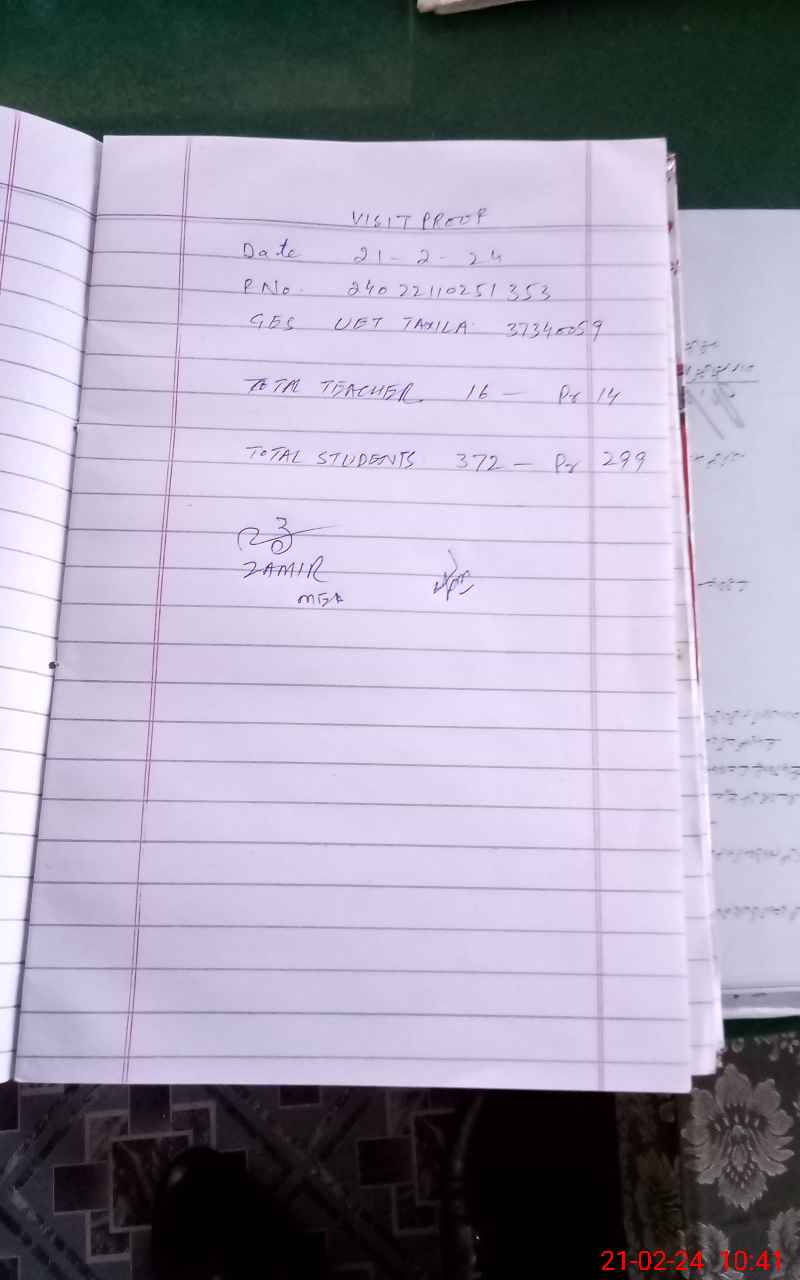 VISIT PROOF
Date 21-2-24
P.No. 24022110251353
GES UET TAXILA 37340059
TOTAL TEACHER 16 - Pr 14
TOTAL STUDENTS 372 - Pr 299
ZAMIR
MEA
21-02-24 10:41